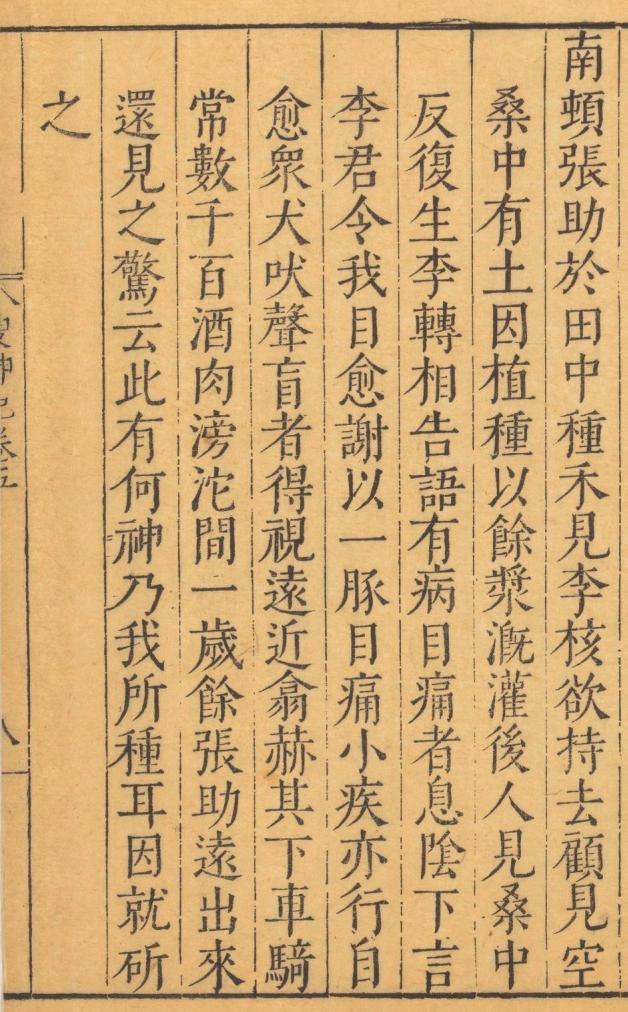 南頓張助於田中種禾見李核欲持去顧見空
桑中有土因植種以餘漿漑灌後人見桑中
反復生李轉相告語有病目痛者息陰下言
李君令我目愈謝以一豚目痛小疾亦行自
愈衆犬吠聲盲者得視遠近翕赫其下車騎
常數千百酒肉滂沱間一歲餘張助遠出來
還見之驚云此有何神乃我所種耳因就斫
之
搜神記卷五
八